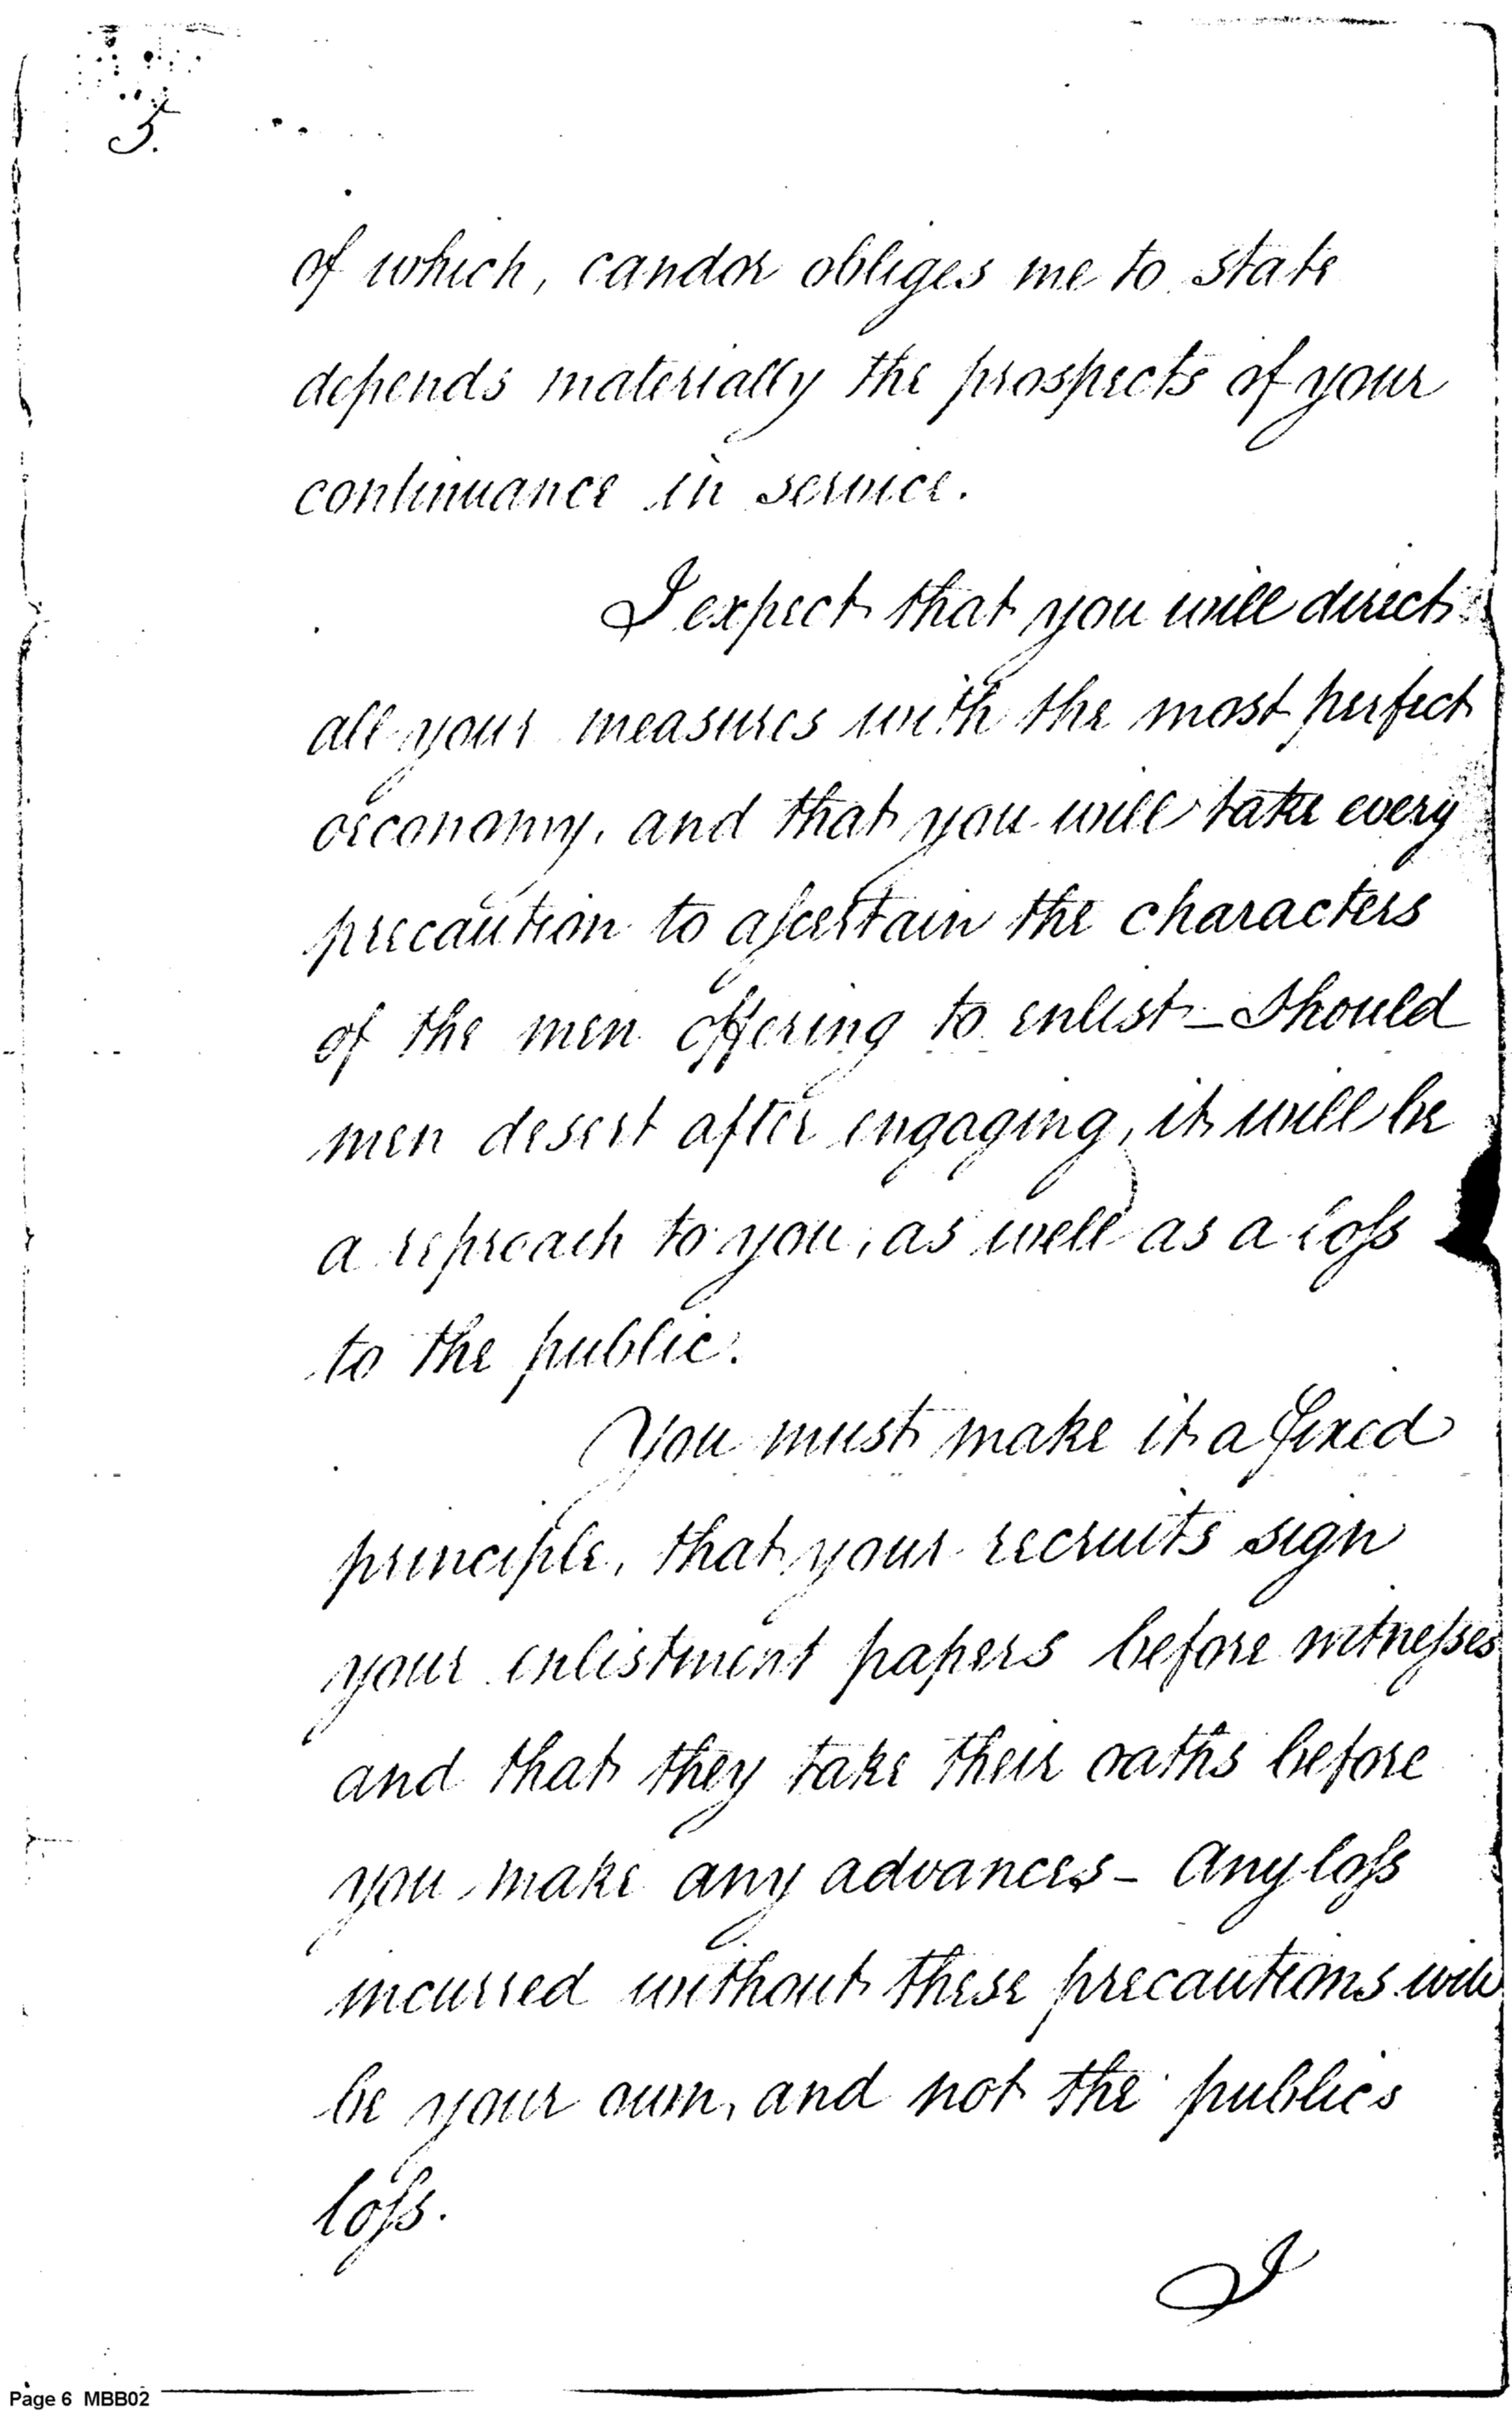 5.
of which, candor obliges me to state
depends materially the prospects of your
continuance in service.
I expect that you will direct
all your measures with the most perfect
oeconomy, and that you will take every
precaution to aſcertain the characters
of the men offering to enlist – Should
men desert after engaging, it will be
a reproach to you, as well as a loſs
to the public.
You must make it a fixed
principle, that your recruits sign
your enlistment papers before witneſses
and that they take their oaths before
you make any advances – Any loſs
incurred without these precautions will
be your own, and not the publics
loſs.
I
Page 6 MBB02